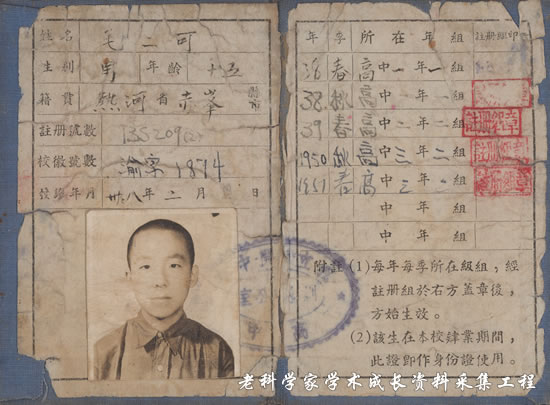 姓名 毛二可
生别 男 年龄 十五
籍貫 熱河省赤峯
註册號數 135209(2)
校徽號數 渝字1894
發證年月 卅八年二月 日
年季所在年組 註册組印
38 春 高中一年一組
38 秋 高中二年一組
39 春 高中二年二組
1950 秋 高中三年二組
1951 春 高中三年一組
中 年 組
中 年 組
註册組章
附註 (1) 每年每季所在級組,經
註册組於右方蓋章後,
方始生效。
(2) 該生在本校肄業期間,
此證卽作身份證使用。
老科学家学术成长资料采集工程